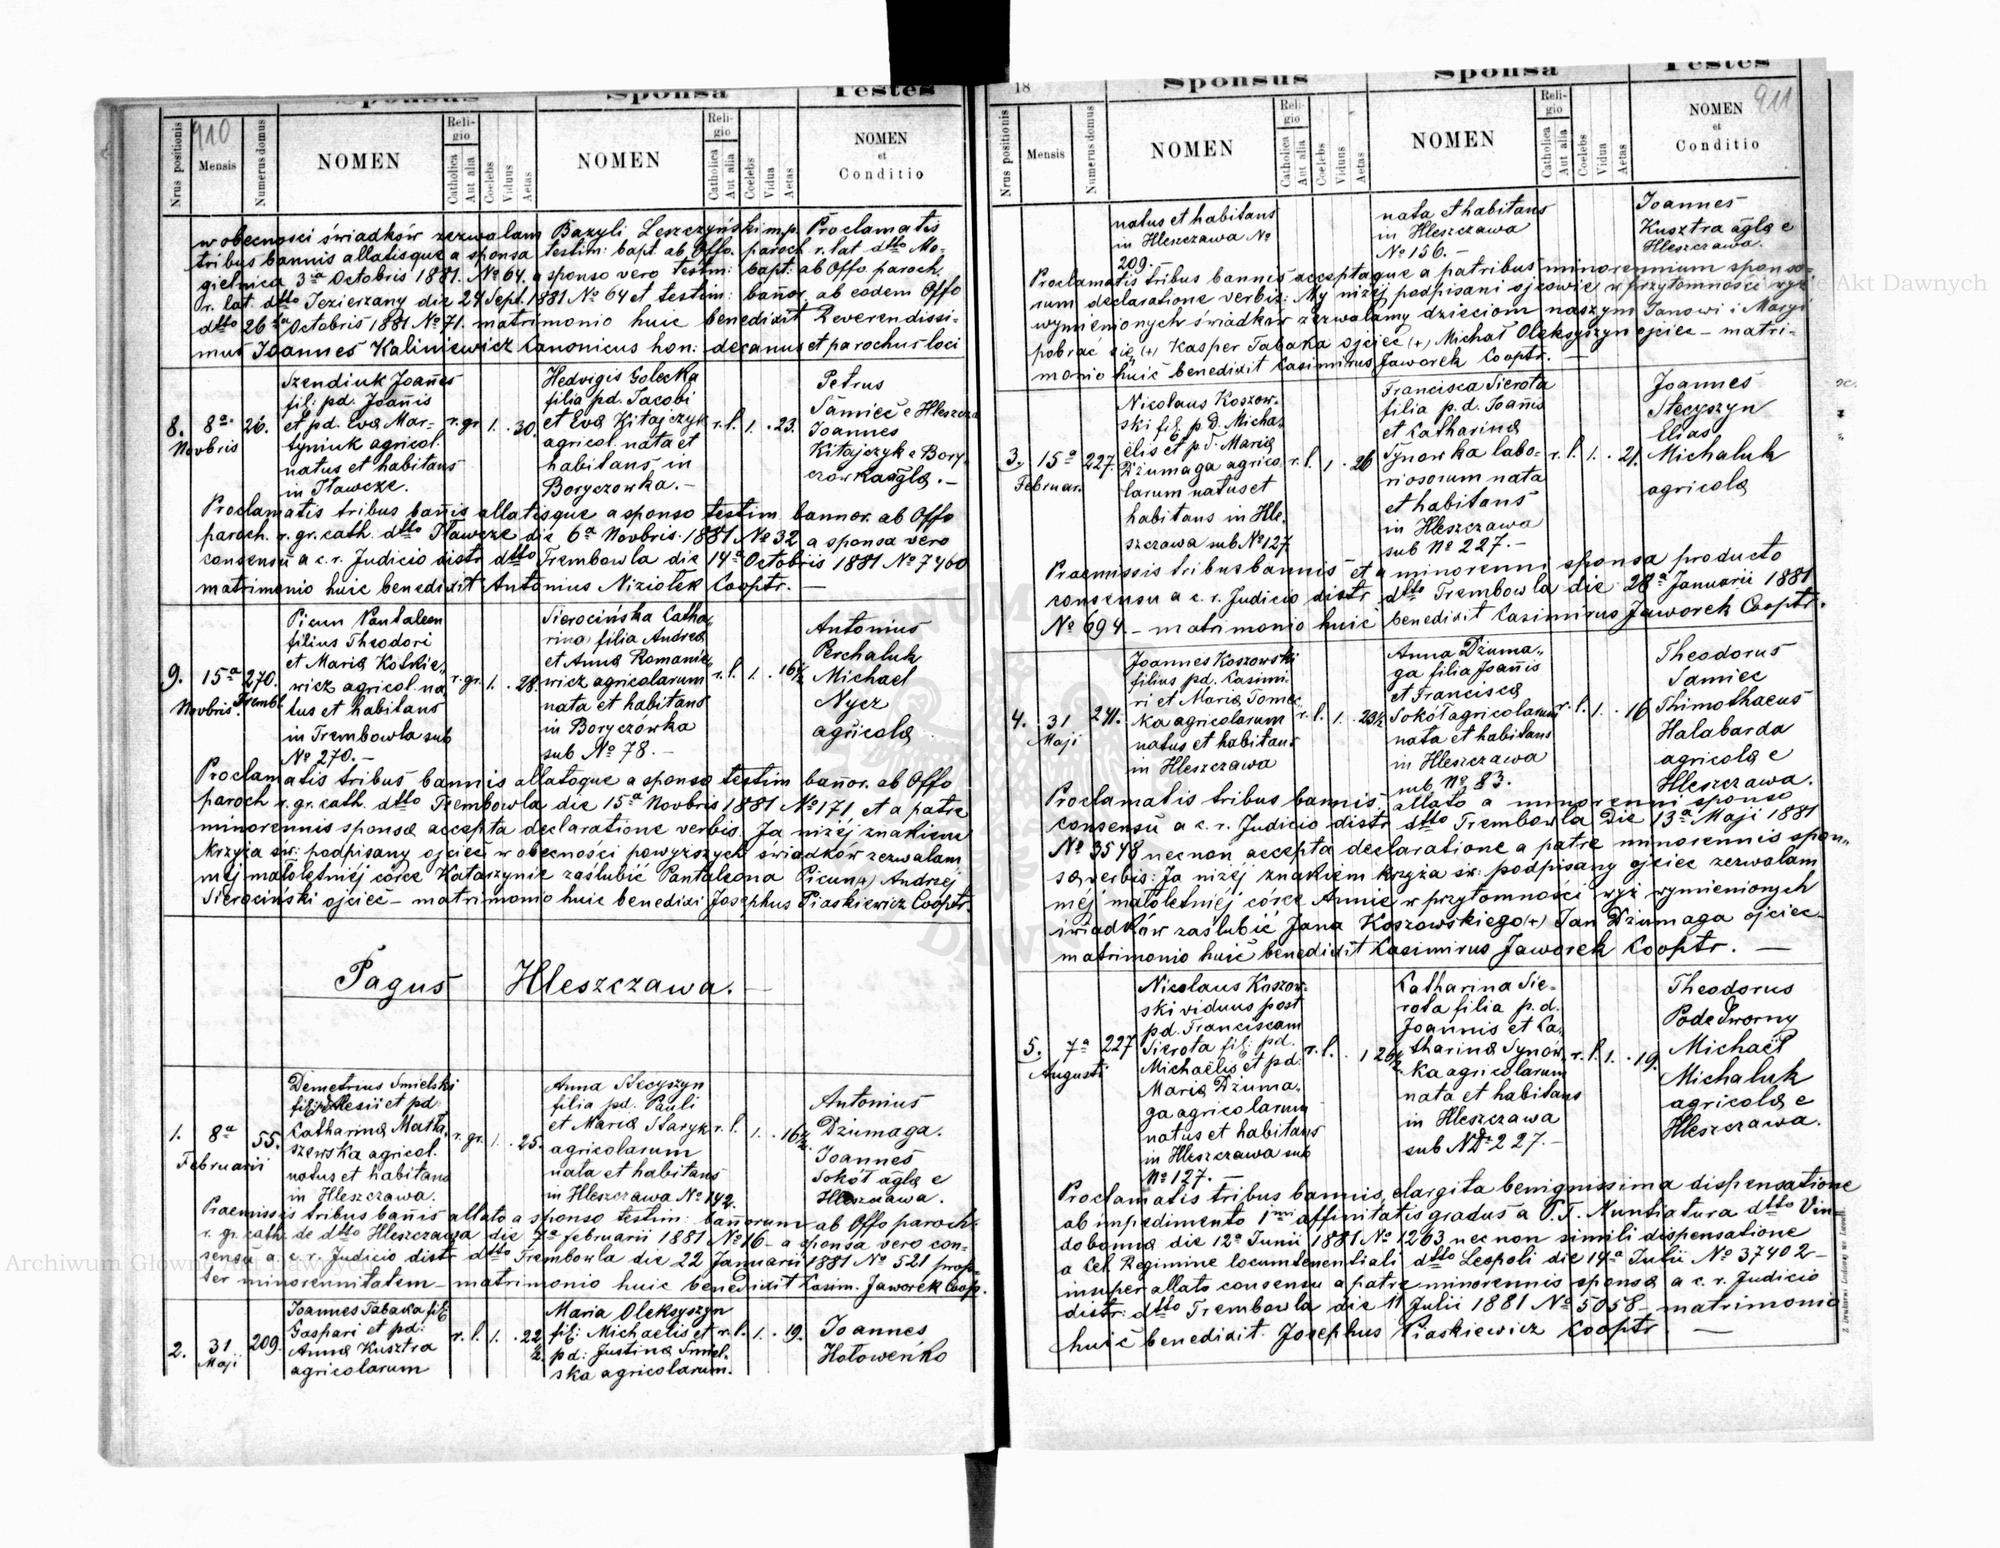 Sponsus Sponsa Testes
910
Nrus positionis Mensis Numerus domus NOMEN Religio Catholica Aut alia Coelebs Viduus Aetas NOMEN Religio Catholica Aut alia Coelebs Vidua Aetas NOMEN et Conditio
w obecności świadków zezwalam Bazyli Leszczyński mp. Proclamatis
tribus bannis allatisque a sponsa testim: bapt. ab Offo. paroch r. lat. dtto Mo-
gielnica 3ia Octobris 1881. No 64. a sponso vero testim: bapt: ab Offo paroch.
r. lat. dtto Jezierzany die 24 Sept. 1881 No 64 et testim: bañor. ab eodem Offo
dtto 26ta Octobris 1881 No 71. matrimonio huic benedixit Reverendissi-
mus Joannes Kaliniewicz Canonicus hon: decanus et parochus loci
8. 8a Novbris 26.
Szendiuk Joañes
fil: pd. Joañis
et pd. Eva Mar-
tyniuk agricol.
natus et habitans
in Iławcze.
r. gr. 1. . 30.
Hedvigis Golecka
filia pd. Jacobi
et Eva Kitajczyk
agricol. nata et
habitans in
Boryczowka. -
r. l. 1. . 23.
Petrus
Samiec e Hleszcza
Joannes
Kitajczyk e Bory-
czówka aglæ. -
Proclamatis tribus bañis allatisque a sponso testim. bannor. ab Offo
paroch. r. gr. cath. dtto Iławcze die 6a Novbris 1881 No 32 a sponsa vero
consensu a c. r. Judicio distr dtto Trembowla die 14a Octobris 1881 No 7460
matrimonio huic benedixit Antonius Niziołek Cooptr. —
9. 15a Novbris. 270. Trembl.
Picun Pantaleon
filius Theodori
et Mariæ Kotkie-
wicz agricol. na-
tus et habitans
in Trembowla sub
No 270. -
r. gr. 1. . 28.
Sierocińska Catha-
rina filia Andreæ
et Annæ Romanie-
wicz agricolarum
nata et habitans
in Boryczówka
sub No 78. -
r. l. 1. . 16½
Antonius
Perchaluk
Michael
Nycz
agricolæ
Proclamatis tribus bannis allatoque a sponso testim bañor. ab Offo
paroch r. gr. cath. dtto Trembowla die 15a Novbris 1881 No 171, et a patre
minorennis sponsæ accepta declaratione verbis: Ja niżéj znakiem
krzyża św: podpisany ojciec w obecności powyższych świadków zezwalam
méj małoletniéj córce Katarzynie zaślubić Pantaleona Picun (+) Andrzej
Sierociński ojciec - matrimonio huic benedixi Josephus Piaskiewicz Cooptr.
Pagus Hleszczawa. —
1. 8a Februarii 55.
Demetrius Smielski
fil: Alesii et pd:
Catharinæ Matła-
szewska agricol.
natus et habitans
in Hleszczawa.
r. gr. 1. . 25.
Anna Stecyszyn
filia pd. Pauli
et Mariæ Staryk
agricolarum
nata et habitans
in Hleszczawa No 142.
r. l. 1. . 16½
Antonius
Dziumaga.
Joannes
Sokół aglæ e
Hleszczawa.
Praemissis tribus bañis allato a sponso testim: bañorum ab Offo paroch.
r. gr. cath. de dtto Hleszczawa die 7a februarii 1881 No 16 - a sponsa vero con-
sensu a c. r. Judicio distr dtto Trembowla die 22 Januarii 1881 No 521 prop-
ter minorennitatem - matrimonio huic benedixit Casim. Jaworek Coop.
2. 31 Maji 209.
Joannes Tabaka fil:
Gaspari et pd:
Annæ Kusztra
agricolarum
r. l. 1. . 22½
Maria Oleksyszyn
fil: Michaelis et
pd: Justinæ Smiel-
ska agricolarum.
r. l. 1. . 19.
Joannes
Hołowenko
18 Sponsus Sponsa Testes
911
Nrus positionis Mensis Numerus domus NOMEN Religio Catholica Aut alia Coelebs Viduus Aetas NOMEN Religio Catholica Aut alia Coelebs Vidua Aetas NOMEN et Conditio
natus et habitans
in Hleszczawa No
209.
nata et habitans
in Hleszczawa
No 156. -
Joannes
Kusztra aglæ e
Hleszczawa.
Proclamatis tribus bannis acceptaque a patribus minorennium sponso-
rum declaratione verbis: My niżéj podpisani ojcowie w przytomności wyż
wymienionych świadków zezwalamy dzieciom naszym Janowi i Maryi
pobrać się (+) Kasper Tabaka ojciec (+) Michał Oleksyszyn ojciec - matri-
monio huic benedixit Casimirus Jaworek Cooptr. —
3. 15a Februar. 227.
Nicolaus Koszow-
ski fil. p. d. Micha-
ëlis et p. d. Mariæ
Dziumaga agrico-
larum natus et
habitans in Hle-
szczawa sub No 127
r. l. 1 . 26
Francisca Sierota
filia p. d. Joañis
et Catharinæ
Synowka labo-
riosorum nata
et habitans
in Hleszczawa
sub No 227. -
r. l. 1. . 21.
Joannes
Stecyszyn
Elias
Michaluk
agricolæ
Praemissis tribus bannis et a minorenni sponsa producto
consensu a c. r. Judicio distr dtto Trembowla die 28a Januarii 1881
No 694. - matrimonio huic benedixit Casimirus Jaworek Cooptr.
4. 31 Maji 241.
Joannes Koszowski
filius pd. Casimi-
ri et Mariæ Tomec-
ka agricolarum
natus et habitans
in Hleszczawa
r. l. 1. . 23½
Anna Dziuma-
ga filia Joañis
et Franciscæ
Sokół agricolarum
nata et habitans
in Hleszczawa
sub No 83.
r. l. 1. . 16
Theodorus
Samiec
Thimothaeus
Halabarda
agricolæ e
Hleszczawa.
Proclamatis tribus bannis, allato a minorenni sponso
consensu a c. r. Judicio distr dtto Trembowla die 13a Maji 1881
No 3548 necnon accepta declaratione a patre minorennis spon-
sæ verbis: Ja niżej znakiem krzyża św: podpisany ojciec zezwalam
méj małoletniéj córce Annie w przytomności wyż wymienionych
świadków zaślubić Jana Koszowskiego (+) Jan Dziumaga ojciec -
matrimonio huic benedixit Casimirus Jaworek Cooptr. —
5. 7a Augusti 227
Nicolaus Koszow-
ski viduus post
pd. Franciscam
Sierota fil: pd.
Michaëlis et pd:
Mariæ Dziuma-
ga agricolarum
natus et habitans
in Hleszczawa sub
No 127. —
r. l. . 1 26½
Catharina Sie-
rota filia p. d.
Joannis et Ca-
tharinæ Synów-
ka agricolarum
nata et habitans
in Hleszczawa
sub No 227. -
r. l. 1. . 19.
Theodorus
Podedworny
Michaël
Michaluk
agricolæ e
Hleszczawa.
Proclamatis tribus bannis, elargita benignissima dispensatione
ab impedimento 1mi affinitatis gradus a P. T. Nuntiatura dtto Vin-
dobonæ die 12a Junii 1881 No 1263 necnon simili dispensatione
a Cels. Regimine locumtenentiali dtto Leopoli die 14a Julii No 37402 -
insuper allato consensu a patre minorennis sponsæ a c. r. Judicio
distr. dtto Trembowla die 11 Julii 1881 No 5058 - matrimonio
huic benedixit Josephus Piaskiewicz Cooptr. —
Archiwum Główne Akt Dawnych